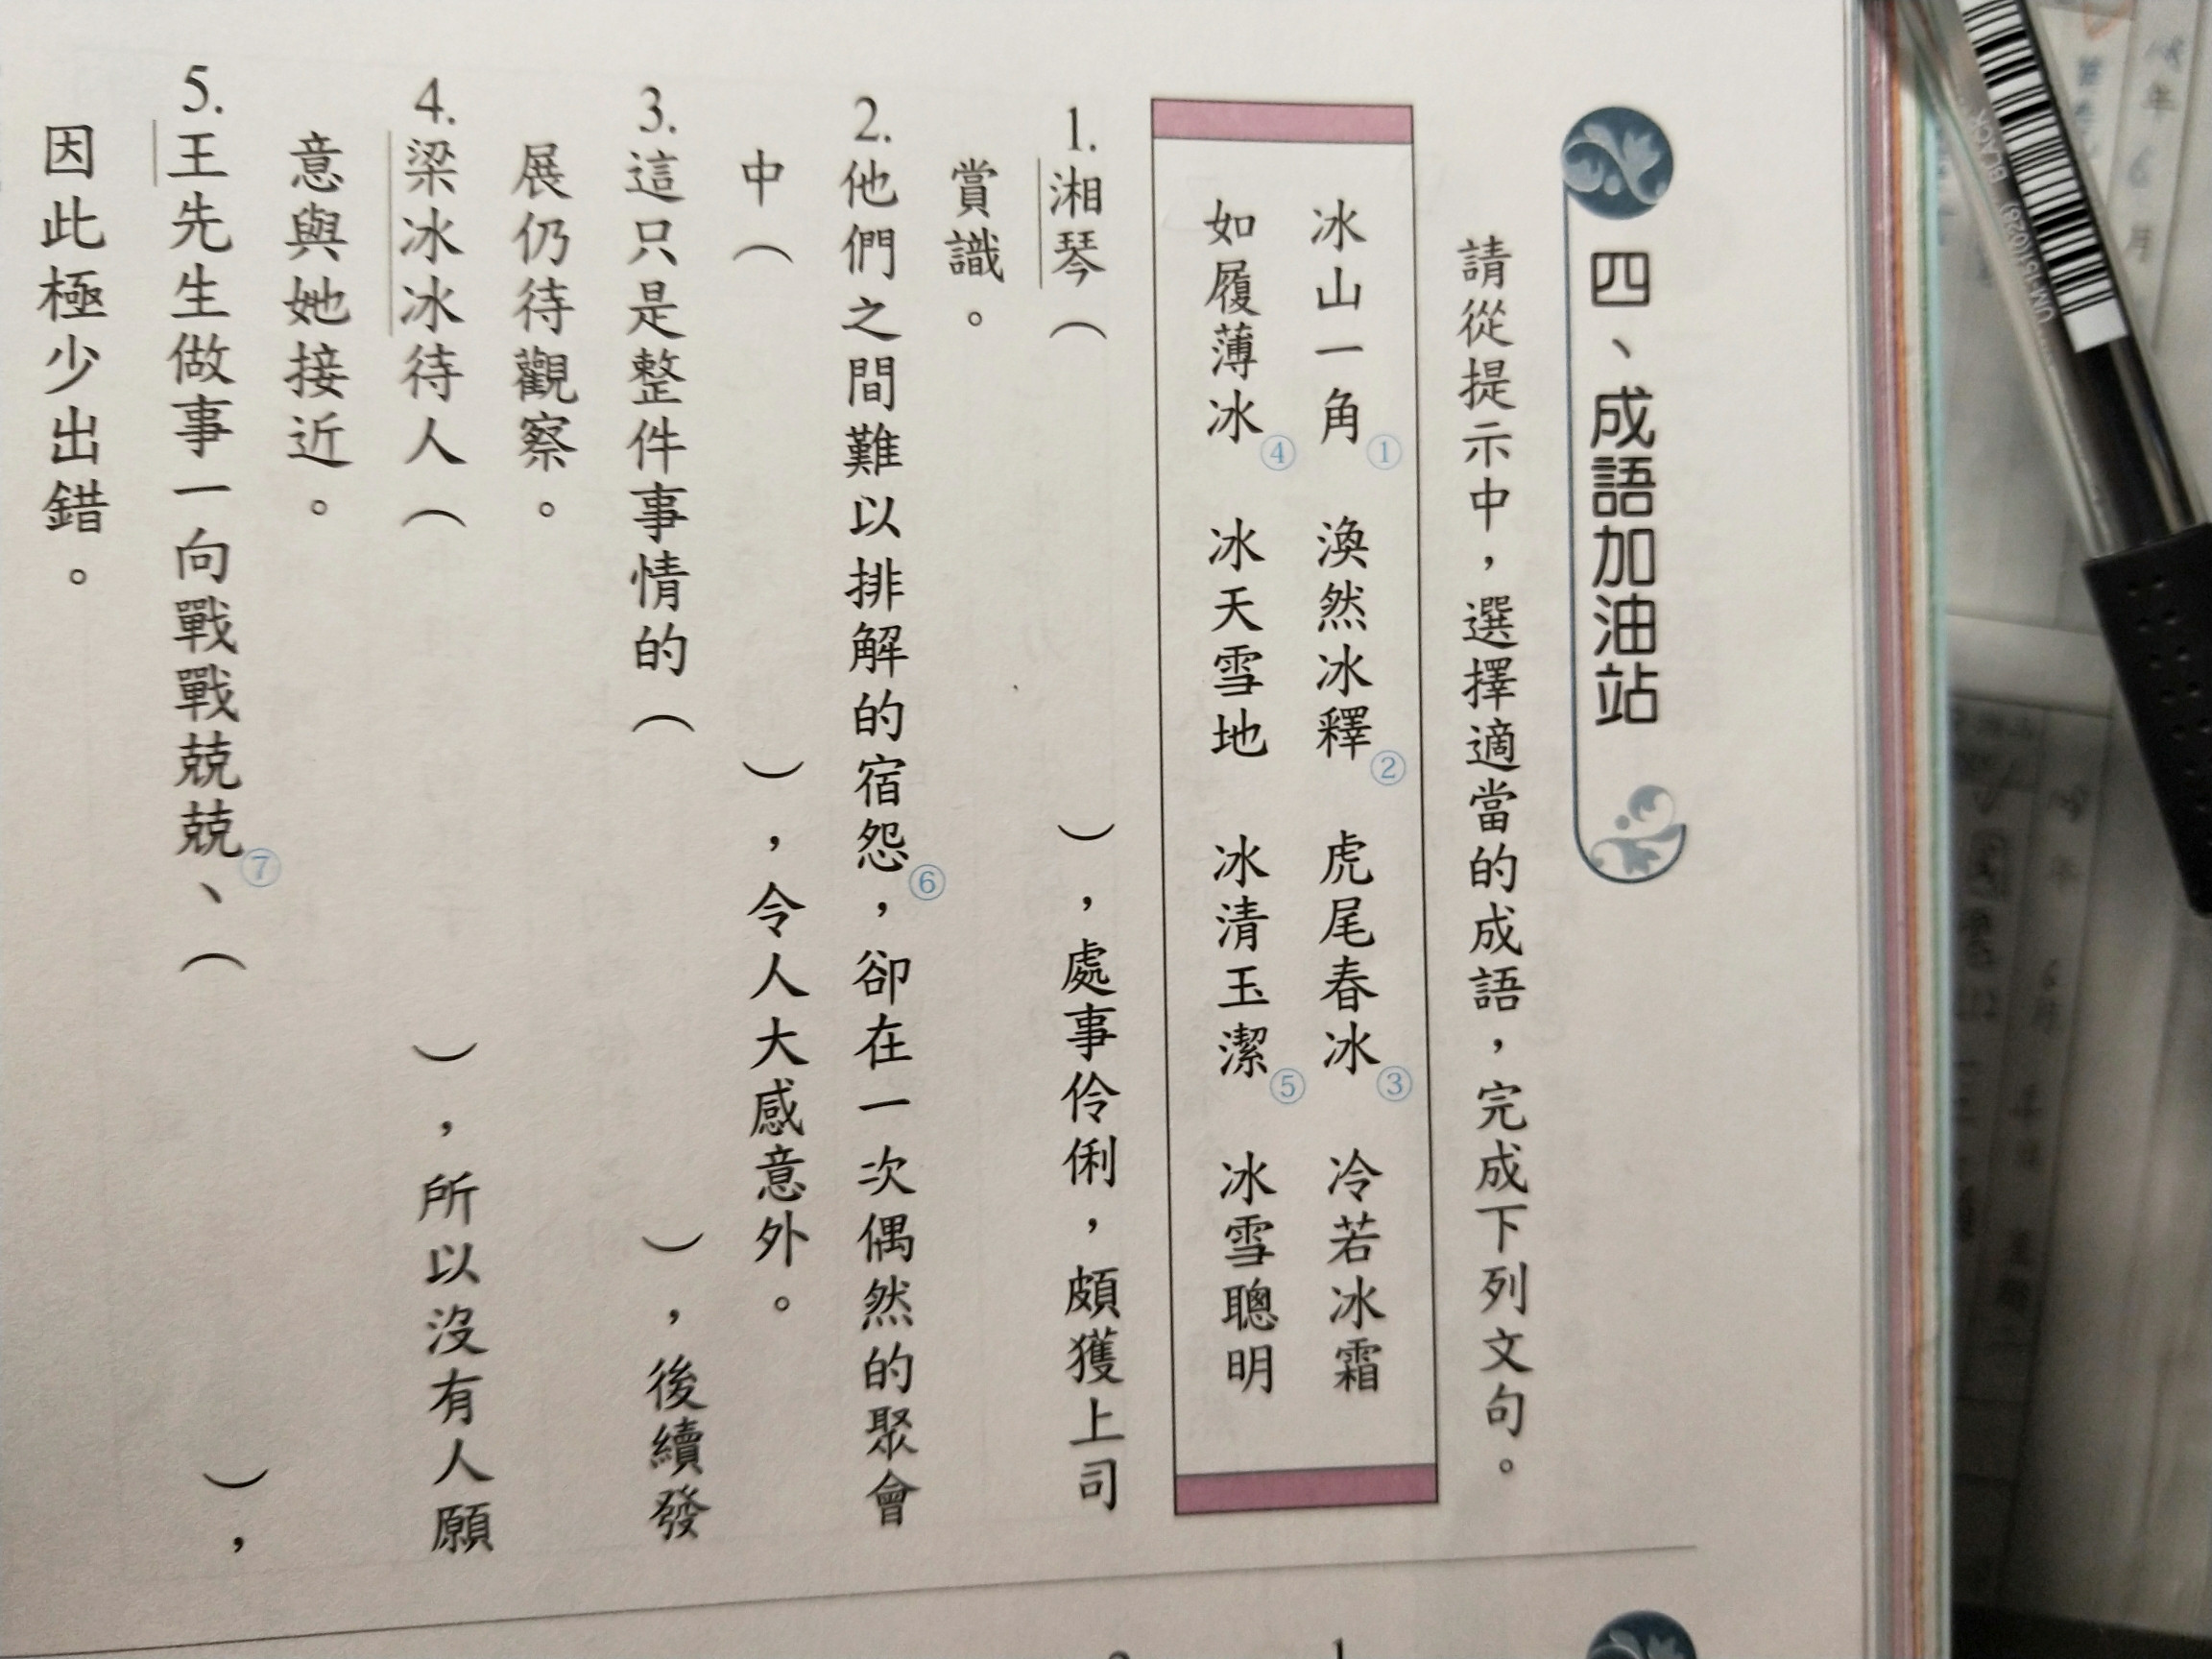 四、成語加油站
請從提示中，選擇適當的成語，完成下列文句。
冰山一角① 渙然冰釋② 虎尾春冰③ 冷若冰霜
如履薄冰④ 冰天雪地 冰清玉潔⑤ 冰雪聰明
1.湘琴（　　　　），處事伶俐，頗獲上司
賞識。
2.他們之間難以排解的宿怨⑥，卻在一次偶然的聚會
中（　　　　），令人大感意外。
3.這只是整件事情的（　　　　），後續發
展仍待觀察。
4.梁冰冰待人（　　　　），所以沒有人願
意與她接近。
5.王先生做事一向戰戰兢兢⑦、（　　　　），
因此極少出錯。